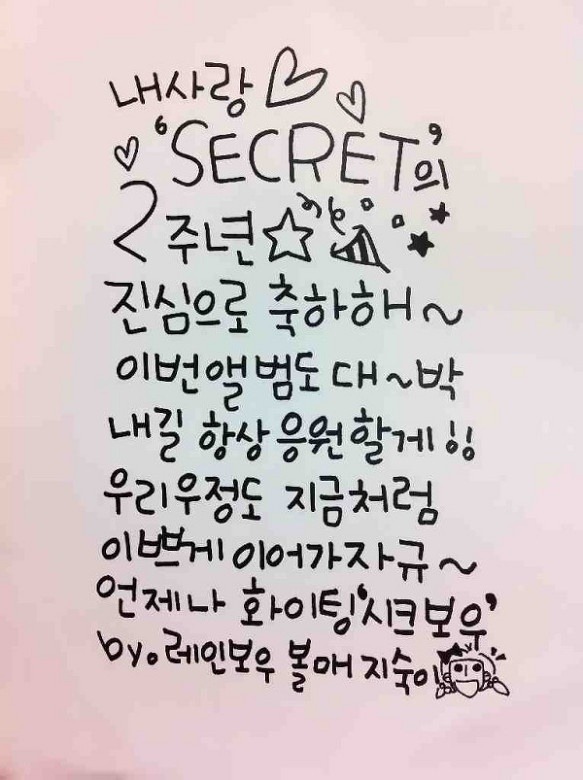 내사랑
'SECRET'의
2주년
진심으로 축하해~
이번앨범도 대~박
내길 항상 응원할게!!
우리우정도 지금처럼
이쁘게 이어가자규~
언제나 화이팅 '시크보우'
by. 레인보우 볼매 지숙이